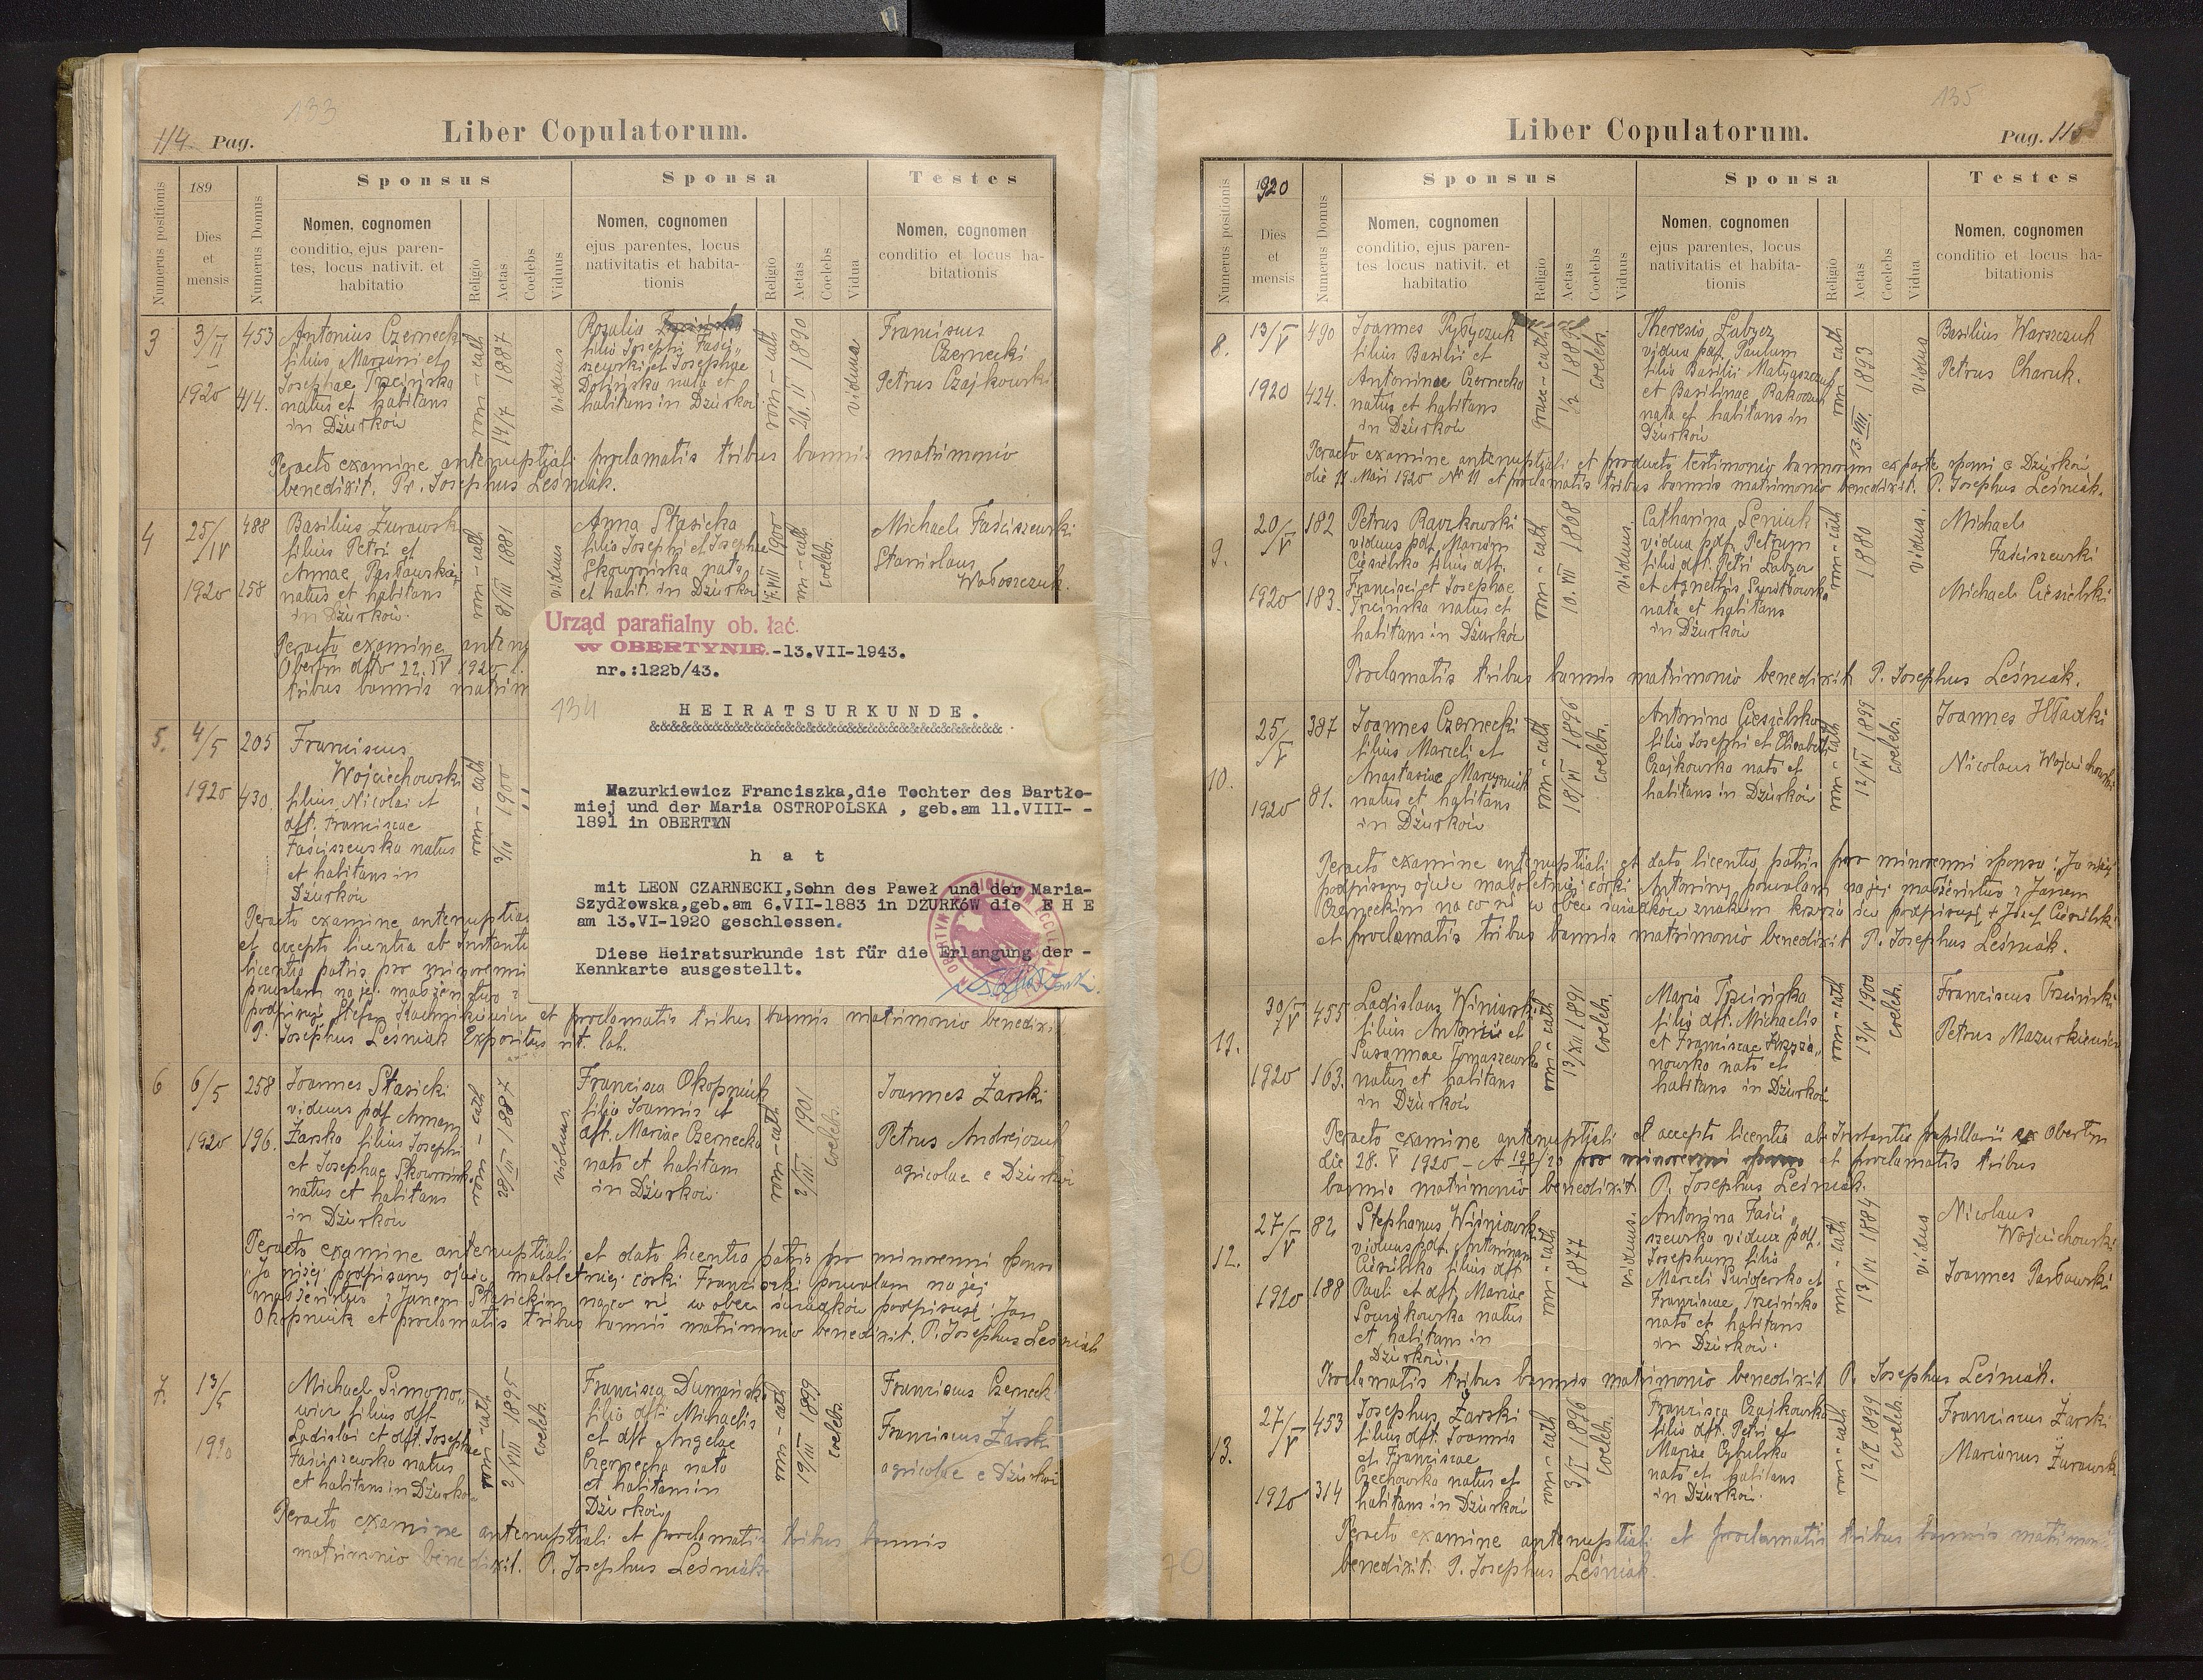 133
114 Pag.
Liber Copulatorum.
Numerus positionis
189
Dies
et
mensis
Numerus Domus
Sponsus
Nomen, cognomen
conditio, ejus paren-
tes, locus nativit. et
habitatio
Religio
Aetas
Coelebs
Viduus
Sponsa
Nomen, cognomen
ejus parentes, locus
nativitatis et habita-
tionis
Religio
Aetas
Coelebs
Vidua
Testes
Nomen, cognomen
conditio et locus ha-
bitationis
3
3/II
1920
453
414.
Antonius Czernecki
filius Marzani et
Josephae Trzcińska
natus et habitans
in Dżurków
rom-cath
14/7 1887
viduus
Rosalia
filia Josephi Faści-
szewski et Josephae
Dolińska nata et
habitans in Dżurków
rom-cath
26.II 1890
vidua
Franciscus
Czernecki
Petrus Czajkowski
Peracto examine antenuptiali proclamatis tribus bannis matrimonio
benedixit. Pr. Josephus Leśniak.
4
25/IV
1920
488
158
Basilius Żurawski
filius Petri et
Annae Pasławska
natus et habitans
in Dżurków.
rom-cath
8/III 1881
viduus
Anna Stasicka
filia Josephi et Josephae
Skowrońska nata
et habit. in Dżurków
7.VIII 1900
rom-cath
coelebs.
Michael Faściszewski
Stanislaus
Wołoszczuk.
Peracto examine anten
Obertyn dto 22.IV 1920 l.
tribus bannis matrim
5.
4/5
1920
205
430
Franciscus
Wojciechowski
filius Nicolai et
dft. Franciscae
Faściszewska natus
et habitans in
Dżurków
rom-cath
3/IV 1900
Peracto examine antenuptia
et accepta licentia ab Instanti
licentia patris pro minorenni
pozwalam na jej małżeństwo z
podpisuję Stefan Kaczmarkiewicz et proclamatis tribus bannis matrimonio benedixi
P. Josephus Leśniak Expositus rit. lat.
Urząd parafialny ob. łać.
W OBERTYNIE.-13.VII-1943.
nr.:122b/43.
134
HEIRATSURKUNDE.
&&&&&&&&&&&&&&&&&&&&&&&&&&&&&&&&&&
Mazurkiewicz Franciszka,die Tochter des Bartło-
miej und der Maria OSTROPOLSKA , geb.am 11.VIII- -
1891 in OBERTYN
h a t
mit LEON CZARNECKI,Sohn des Paweł und der Maria-
Szydłowska,geb.am 6.VII-1883 in DŻURKÓW die E H E
am 13.VI-1920 geschlossen.
Diese Heiratsurkunde ist für die Erlangung der -
Kennkarte ausgestellt.
6
6/5
1920
258
196.
Joannes Stasicki
viduus pdf Annam
Żarska filius Josephi
et Josephae Skowrońska
natus et habitans
in Dżurków
rom-cath
28/III 1887
viduus.
Francisca Okopniuk
filia Joannis et
dft. Mariae Czernecka
nata et habitans
in Dżurków.
rom-cath
2/III 1901
coelebs.
Joannes Żarski
Petrus Andrejczuk
agricolae e Dżurków
Peracto examine antenuptiali et data licentia patris pro minorenni sponsa
"Ja niżej podpisany ojciec małoletniej córki Franciszki pozwalam na jej
małżeństwo z Janem Stasickim na co się w obec świadków podpisuję: Jan
Okopniuk et proclamatis tribus bannis matrimonio benedixit. P. Josephus Leśniak
7.
13/5
1920
Michael Simono-
wicz filius dft
Ladislai et dft. Josephae
Faściszewska natus
et habitans in Dżurków
rom-cath
2/VIII 1895
coelebs.
Francisca Dumańska
filia dft. Michaelis
et dft Angelae
Czernecka nata
et habitans in
Dżurków
rom-cath
19/III 1899
coelebs.
Franciscus Czernecki
Franciscus Żarski
agricolae e Dżurków
Peracto examine antenuptiali et proclamatis tribus bannis
matrimonio benedixit. P. Josephus Leśniak
135
Liber Copulatorum.
Pag. 115
Numerus positionis
1920
Dies
et
mensis
Numerus Domus
Sponsus
Nomen, cognomen
conditio, ejus paren-
tes locus nativit. et
habitatio
Religio
Aetas
Coelebs
Viduus
Sponsa
Nomen, cognomen
ejus parentes, locus
nativitatis et habita-
tionis
Religio
Aetas
Coelebs
Vidua
Testes
Nomen, cognomen
conditio et locus ha-
bitationis
8.
13/V
1920
490
424.
Joannes Pyłypczuk
filius Basilii et
Antoninae Czernecka
natus et habitans
in Dżurków
graec-cath
1/2 1887
coelebs.
Theresia Łabycz
vidua pdf. Paulum
filia Basilii Matyaszczuk
et Basilinae Rakoczan
nata et habitans in
Dżurków
rom-cath
13.VIII 1893
vidua
Basilius Warszczuk
Petrus Charuk.
Peracto examine antenuptiali et producto testimonio bannorum ex parte sponsi e Dżurków
die 11 Maii 1920 No 11 et proclamatis tribus bannis matrimonio benedixit. P. Josephus Leśniak.
9.
20/V
1920
182
183.
Petrus Raczkowski
viduus pdf. Mariam
Ciesielska filius dft.
Francisci et Josephae
Trzcińska natus et
habitans in Dżurków
rom-cath
10.VII 1868
viduus.
Catharina Seniuk
vidua pdf. Petrum
filia dft. Petri Łabza
et Agnethis
nata et habitans
in Dżurków
rom-cath
1880
vidua.
Michael
Faściszewski
Michael Ciesielski
Proclamatis tribus bannis matrimonio benedixit P. Josephus Leśniak.
10.
25/V
1920
387
81.
Joannes Czernecki
filius Marceli et
Anastasiae Marcyniuk
natus et habitans
in Dżurków
rom-cath
18/VI 1896
coelebs.
Antonina Ciesielska
filia Josephi et Elisabeth
Czajkowska nata et
habitans in Dżurków
rom-cath
12/VI 1899
coelebs.
Joannes Hładki
Nicolaus Wojciechowski
Peracto examine antenuptiali et data licentia patris pro minorenni sponsa: "Ja niżej
podpisany ojciec małoletniej córki Antoniny pozwalam na jej małżeństwo z Janem
Czerneckim na co się w obec świadków znakiem krzyża św podpisuję + Józef Ciesielski
et proclamatis tribus bannis matrimonio benedixit P. Josephus Leśniak.
11.
30/V
1920
455
163.
Ladislaus Winiarski
filius Antonii et
Susannae Tomaszewska
natus et habitans
in Dżurków
rom-cath
13/XII 1891
coelebs.
Maria Trzcińska
filia dft. Michaelis
et Franciscae Krzyża-
nowska nata et
habitans in Dżurków
rom-cath
13/V 1900
coelebs.
Franciscus Trzciński
Petrus Mazurkiewicz
Peracto examine antenuptiali et accepta licentia ab Instantia pupillarii ex Obertyn
die 28. V 1920 - A pro minorenni sponsa et proclamatis tribus
bannis matrimonio benedixit P. Josephus Leśniak.
12.
27/V
1920
82
188
Stephanus Wiśniowski
viduus pdf. Antoninam
Ciesielska filius dft
Pauli et dft. Mariae
natus
et habitans in
Dżurków.
rom-cath
1877
viduus.
Antonina Faści-
szewska vidua pdf.
Josephum filia
Marceli Swiderska et
Franciscae Trzcińska
nata et habitans
in Dżurków.
rom-cath
13/VI 1884
vidua
Nicolaus
Wojciechowski
Joannes Pasławski
Proclamatis tribus bannis matrimonio benedixit P. Josephus Leśniak.
13.
27/V
1920
453
314
Josephus Żarski
filius dft. Joannis
et Franciscae
Czechowska natus et
habitans in Dżurków
rom-cath
3/I 1896
coelebs.
Francisca Czajkowska
filia dft. Petri et
Mariae Cybulska
nata et habitans
in Dżurków.
rom-cath
12/I 1899
coelebs.
Franciscus Żarski
Marianus Żurawski
Peracto examine antenuptiali et proclamatis tribus bannis matrimoni
benedixit. P. Josephus Leśniak.
70